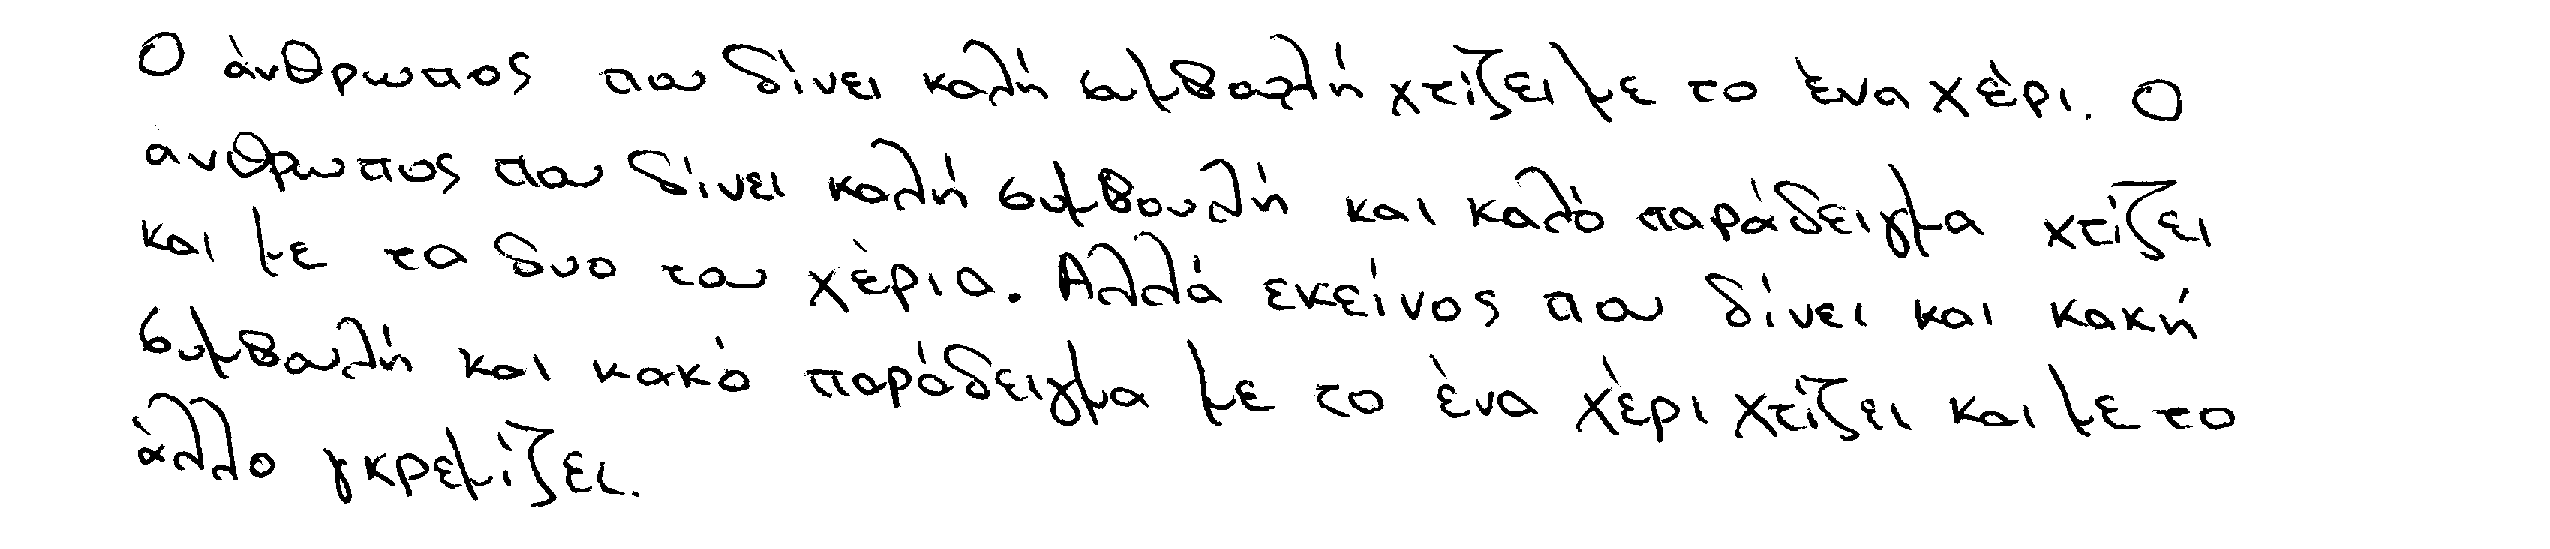 Ο άνθρωπος που δίνει καλή συμβουλή χτίζει με το ένα χέρι. Ο
ανθρωπος που δίνει καλή συμβουλή και καλό παράδειγμα χτίζει
και με τα δυο του χέρια. Αλλά εκείνος που δίνει και κακή
συμβουλή και κακό παράδειγμα με το ένα χέρι χτίζει και με το
άλλο γκρεμίζει.